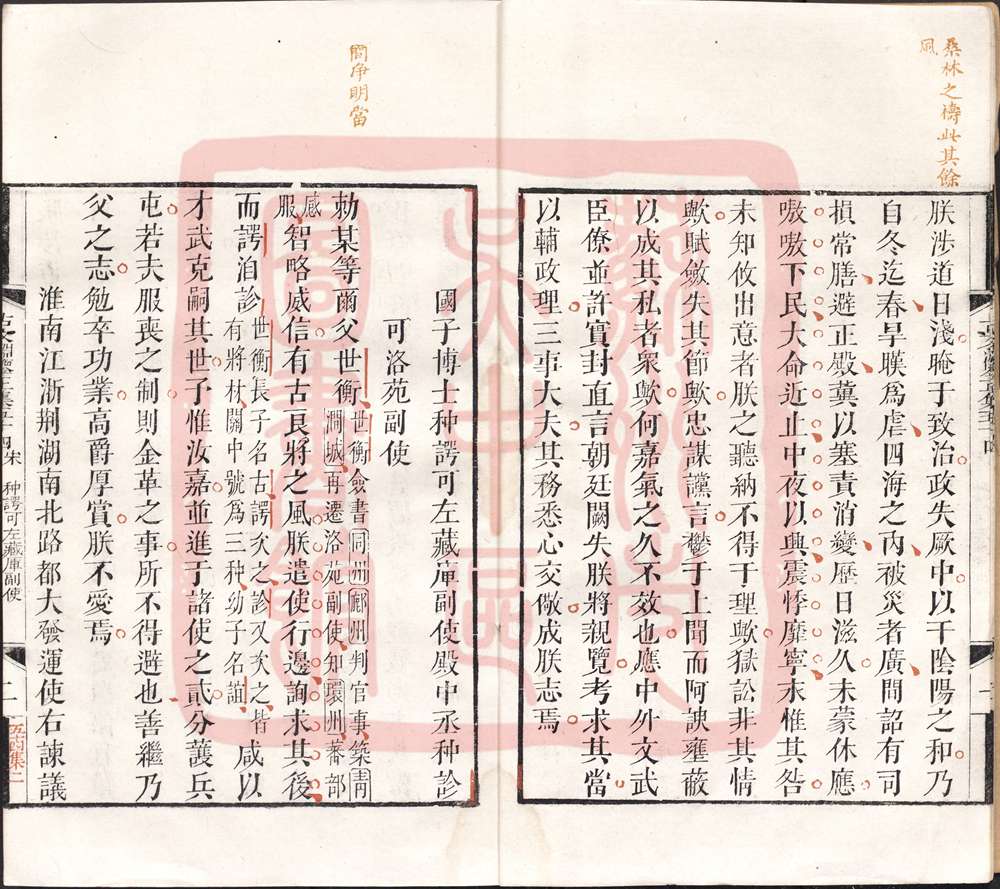 桑林之禱此其餘
風
朕涉道日淺晻于致治政失厥中以干陰陽之和乃
自冬迄春旱暵爲虐四海之內被災者廣間詔有司
損常膳避正殿冀以塞責消變歷日滋久未蒙休應
嗷嗷下民大命近止中夜以興震悸靡寧永惟其咎
未知攸出意者朕之聽納不得于理歟獄訟非其情
歟賦斂失其節歟忠謀讜言鬱于上聞而阿諛壅蔽
以成其私者衆歟何嘉氣之久不效也應中外文武
臣僚並許實封直言朝廷闕失朕將親覽考求其當
以輔政理三事大夫其務悉心交儆成朕志焉
簡淨明當
國子博士种諤可左藏庫副使殿中丞种診
可洛苑副使
勅某等爾父世衡世衡僉書同州鄜州判官事築靑
澗城再遷洛苑副使知環州蕃部
感
服智略威信有古良將之風朕遣使行邊詢求其後
而諤洎診世衡長子名古諤次之診又次之皆
有將材關中號爲三种幼子名誼咸以
才武克嗣其世予惟汝嘉並進于諸使之貳分護兵
屯若夫服喪之制則金革之事所不得避也善繼乃
父之志勉卒功業高爵厚賞朕不愛焉
淮南江浙荆湖南北路都大發運使右諫議
种諤可左藏庫副使
二